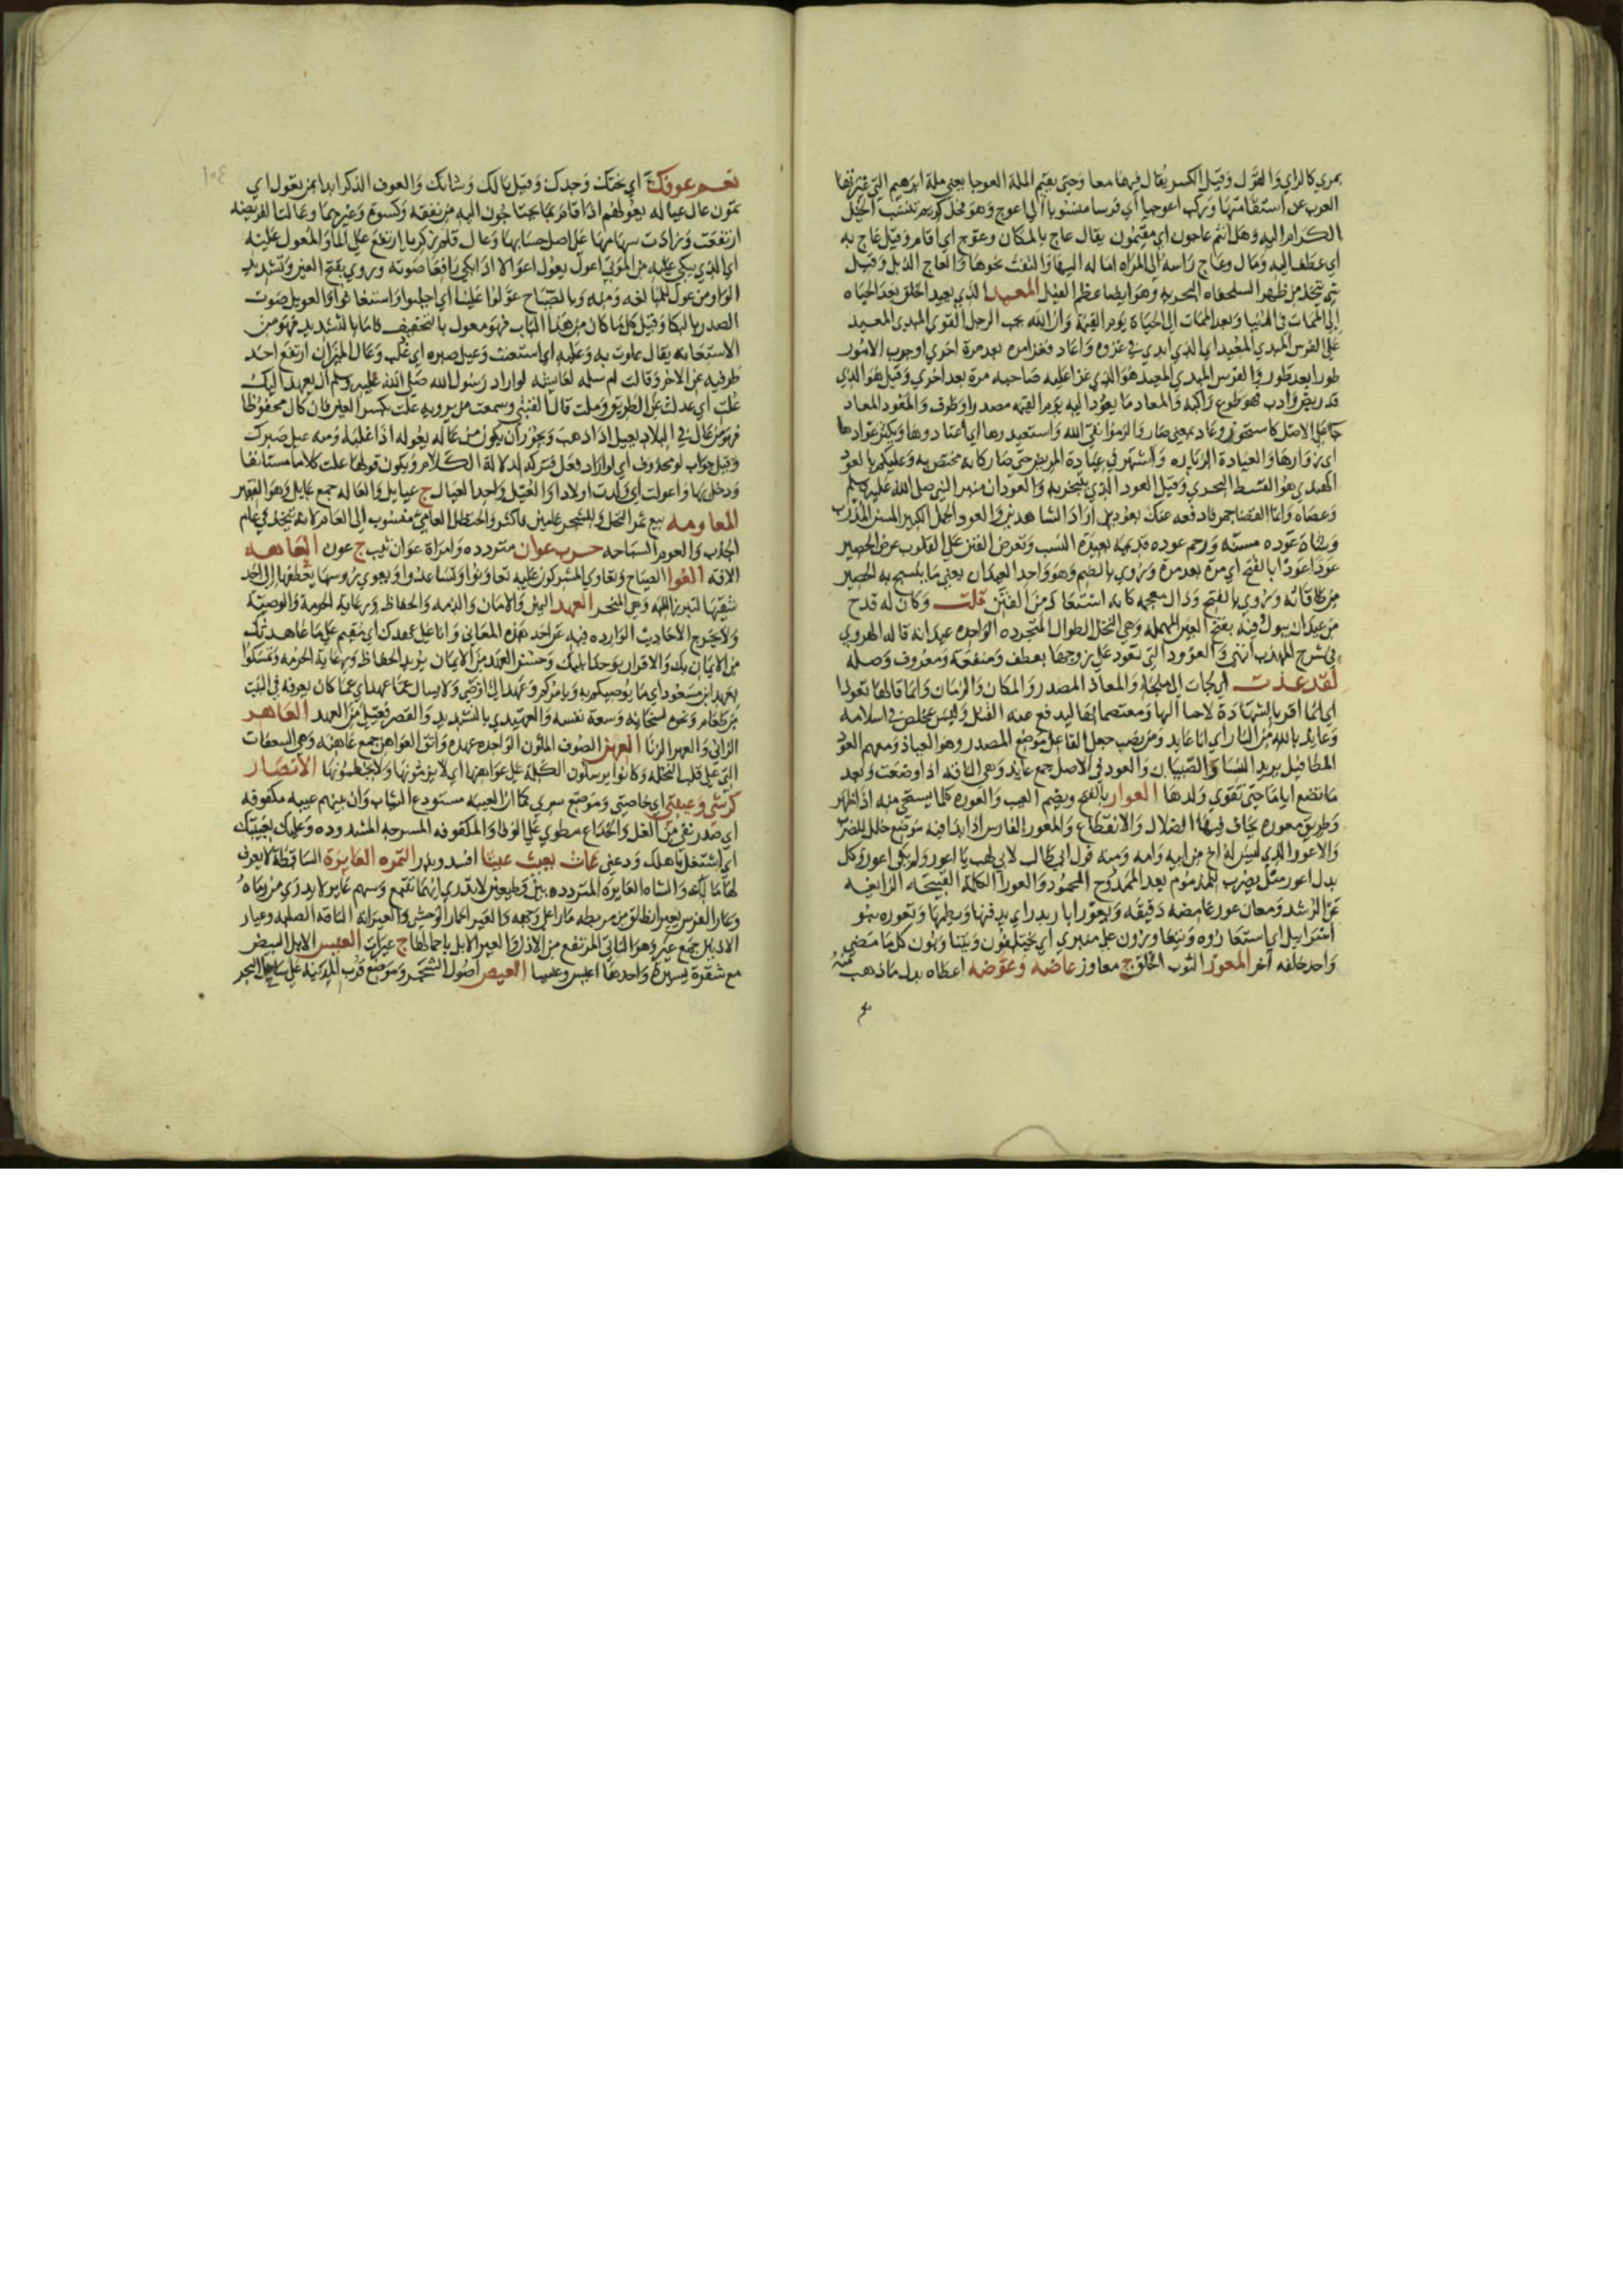 بمري كالراي والقول وقيل الكسر يقال فيهما معا وحتى يقيم الملة العوجا يعني ملة ابرهيم التي غيرتها
العرب عن استقامتها وتركب اعوجيا اي فرسا منسوبا الي اعوج وهو فحل كريم تنسب الخيل
الكرام اليه وهل انتم عاجون اي مقيمون يقال عاج بالمكان وعوج اي اقام وقيل عاج به
اي عطف اليه ومال وعاج راسه الي المراه اماله اليها والتفت نحوها والعاج الذبل وقيل
شي يتخذ من ظهر السلحفاه البحريه وهو ايضا عظم الفيل المعيد الذي يعيد الخلق بعد الحياه
الي الممات في الدنيا وبعد الممات الي الحياة يوم القيمة وان الله يحب الرجل القوي المبدي المعيد
علي الفرس المبدي المعيد اي الذي ابدي في غزوه واعاد فغزا مره بعد مرة اخري اوجرب الامور
طورا بعد طور والفرس المبدي المعيد هو الذي غزا عليه صاحبه مرة بعد اخري وقيل هو الذي
قد ريض وادب فهو طوع راكبه والمعاد ما يعود اليه يوم القيمه مصدر او ظرف والمعود المعاد
جا علي الاصل كاستحوذ وعاد بمعني صار والزموا تقي الله واستعيدوها اي اعتادوها ويكثر عوادها
اي زوارها والعيادة الزياره واشتهر في عيادة المريض حتي صار كانه مختص به وعليكم بالعود
الهندي هو القسط البحري وقيل العود الذي يتبخر به والعودان منبر النبي صلي الله عليه وسلم
وعصاه وانما القضا جمر فادفعه عنك بعودين اراد الشاهدين والعود الجمل الكبير المسن المدرب
وشاة عوده مسنه ورحم عوده قديمة بعيدة النسب وتعرض الفتن علي القلوب عرض الحصير
عودا عودا بالفتح اي مرة بعد مرة وتروي بالضم وهو واحد العيدان يعني ما ينسج به الحصير
من طاقاته وتروي بالفتح وذال معجمه كانه استعاذ من الفتن قلت وكان له قدح
من عيدان يبول فيه بفتح العين المهمله وهي النخل الطوال المتجرده الواحده عيدانه قاله الهروي
في شرح المهذب انتهي والعوود التي تعود علي زوجها بعطف ومنفعة ومعروف وصله
لقد عذت اي لجات الي ملجاء والمعاذ المصدر والمكان والزمان وانما قالها تعوذا
اي انما اقر بالشهادة لاجيا اليها ومعتصما بها ليدفع عنه القتل وليس بمخلص في اسلامه
وعايذ بالله من النار اي انا عايذ ومن نصب جعل الفاعل موضع المصدر وهو العياذ ومعهم العوذ
المطافيل يريد النسا والصبيان والعوذ في الاصل جمع عايذ وهي الناقه اذا وضعت وبعد
ما تضع اياما حتي تقوي ولدها العوار بالفتح ويضم العيب والعوره كلما يستحي منه اذا ظهر
وطريق معوره يخاف فيها الضلال والانقطاع والمعور الفارس اذا بدا فيه موضع خلل للضرب
والاعور الذي ليس له اخ من ابيه وامه ومنه قول ابي طالب لابي لهب يا اعور ولم يكن اعور وكل
بدل اعور مثل يضرب للمذموم بعد الممدوح المحمود والعورا الكلمة القبيحة الزايغه
عن الرشد ومعان عور غامضه دقيقه وبعور ابار بدر اي يدفنها ويطمها وتعوره بنو
اسرايل اي استعاروه وتتعاورون علي منبري اي يختلفون ويتناوبون كل ما مضي
واحد خلفه آخر المعوز الثوب الخلق ج معاوز عاضه وعوضه اعطاه بدل ما ذهب منه
نعم عوفك اي بختك وجدك وقيل بالك وشانك والعوف الذكر ابدا بمن تعول اي
تمون عال عياله يعولهم اذا قام بما يحتاجون اليه من نفقة وكسوة وغيرهما وعالت الفريضه
ارتفعت وزادت سهامها علي اصل حسابها وعال قلم زكريا ارتفع علي الما والمعول عليه
اي الذي يبكي عليه من الموتي اعول يعول اعوالا اذا بكي رافعا صوته وروي بفتح العين وتشديد
الواو من عول للمبالغه ومنه وبالصياح عولوا علينا اي اجلبوا واستغاثوا والعويل صوت
الصدر بالبكا وقيل كل ما كان من هذا الباب فهو معول بالتخفيف فاما بالتشديد فهو من
الاستعانه يقال عولت به وعليه اي استعنت وعيل صبره اي غلب وعال الميزان ارتفع احد
طرفيه عن الاخر وقالت ام سلمه لعايشه لو اراد رسول الله صلي الله عليه وسلم ان يعهد اليك
علت اي عدلت عن الطريق وملت قال القتيبي وسمعت من يرويه علت بكسر العين فان كان محفوظا
فهو من عال في البلاد يعيل اذا ذهب ويجوز ان يكون من عاله يعوله اذا غلبه ومنه عيل صبرك
وقيل جواب لو محذوف اي لو اراد فعل فتركه لدلالة الكلام ويكون قولها علت كلاما مستانفا
ودخل بها واعولت اي ولدت اولادا والعيل واحد العيال ج عيايل والعاله جمع عايل وهو الفقير
المعاومه بيع ثمر النخل والشجر عامين فاكثر والحنظل العامي منسوب الي العام لانه يتخذ في عام
الجدب والعوم السباحه حرب عوان متردده وامراة عوان ثيب ج عون العاهه
الافه العوا الصياح وتعاوي المشركون عليه تعاونوا وتساعدوا ويعوي روسها يعطفها الي احد
شقيها لتبرز اللبه وهي المنحر العهد اليمين والامان والذمه والحفاظ ورعاية الحرمة والوصية
ولا تخرج الاحاديث الوارده فيه عن احد هذه المعاني وانا علي عهدك اي مقيم علي ما عاهدتك
من الايمان بك والاقرار بوحدانيتك وحسن العهد من الايمان يريد الحفاظ ورعاية الحرمه وتمسكوا
بعهد ابن مسعود اي ما يوصيكم به ويامركم وعهد الي اوصي ولا يسال عما عهد اي عما كان يعرفه في البيت
من طعام ونحوه لسخايه وسعة نفسه والعهيدي بالتشديد والقصر فعيلي من العهد العاهر
الزاني والعهر الزنا العهن الصوف الملون الواحده عهده واتق العواهن جمع عاهنه وهي السعفات
التي علي قلب النخله وكانوا يرسلون الكلمة علي عواهنها اي لا يزمونها ولا يخطمونها الانصار
كرشي وعيبتي اي خاصتي وموضع سري كما ان العيبه مستودع الثياب وان بينهم عيبه مكفوفه
اي صدر نقي من الغل والخداع مطوي علي الوفا والمكفوفه المسرجه المشدوده وعليك بعيبتك
اي اشتغل باهلك ودعني عاث يعيث عيثا افسد وبذر التمره العايرة الساقطة لا يعرف
لها مالك والشاه العايرة المتردده بين قطيعين لا تدري ايهما تتبع وسهم عاير لا يدري من رماه
وعار الفرس يعير انطلق من مربطه مارا علي وجهه والعير الحمار الوحشي والعيرانه الناقه الصلبه وعيار
الاذنين جمع عير وهو الناتي المرتفع من الاذن والعير الابل باحمالها ج عيرات العيس الابل البيض
مع شقرة يسيرة واحدها اعيس وعيسا العيص اصول الشجر وموضع قرب المدينه علي ساحل البحر